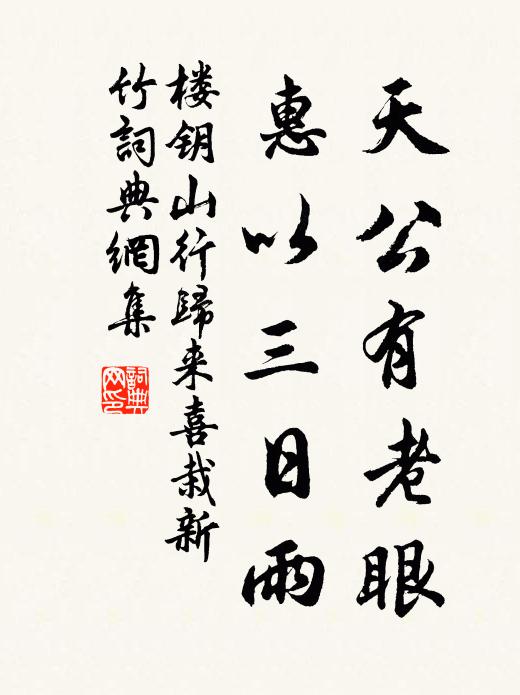 天公有老眼
惠以三日雨
楼钥山行歸来喜栽新
竹詞典網集
詞典
网印